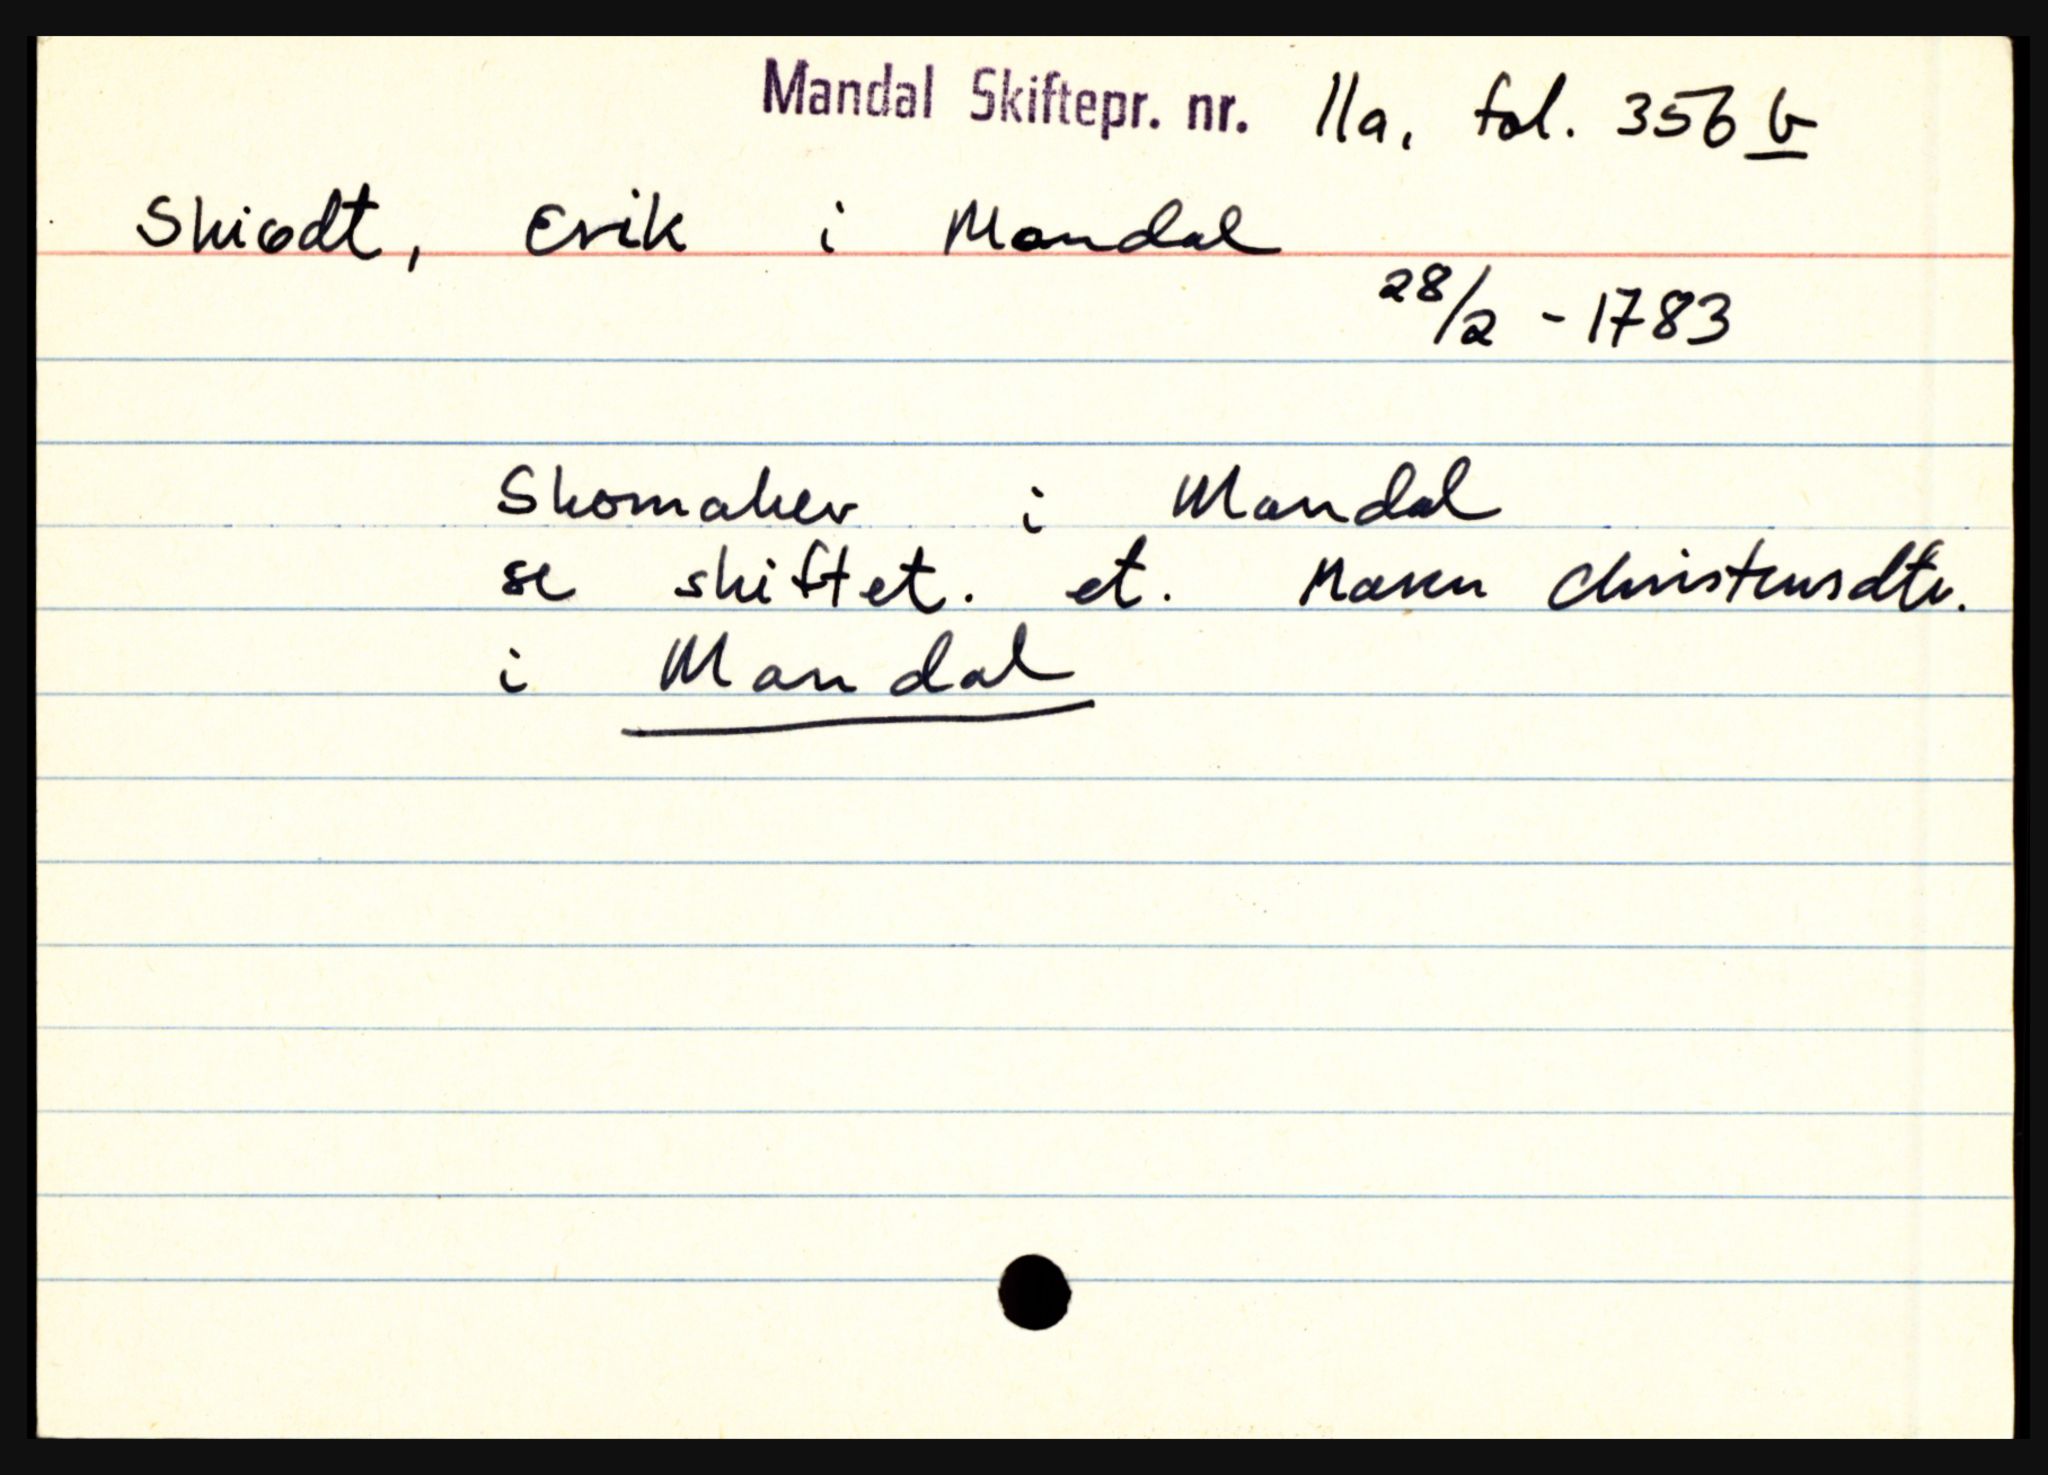 Mandal Skiftepr. nr. 11a, fol. 356 b
Skiødt, Erik i Mandal
28/2 - 1783
Skomaker i Mandal
se skiftet. et. Maren Christensdtr.
i Mandal